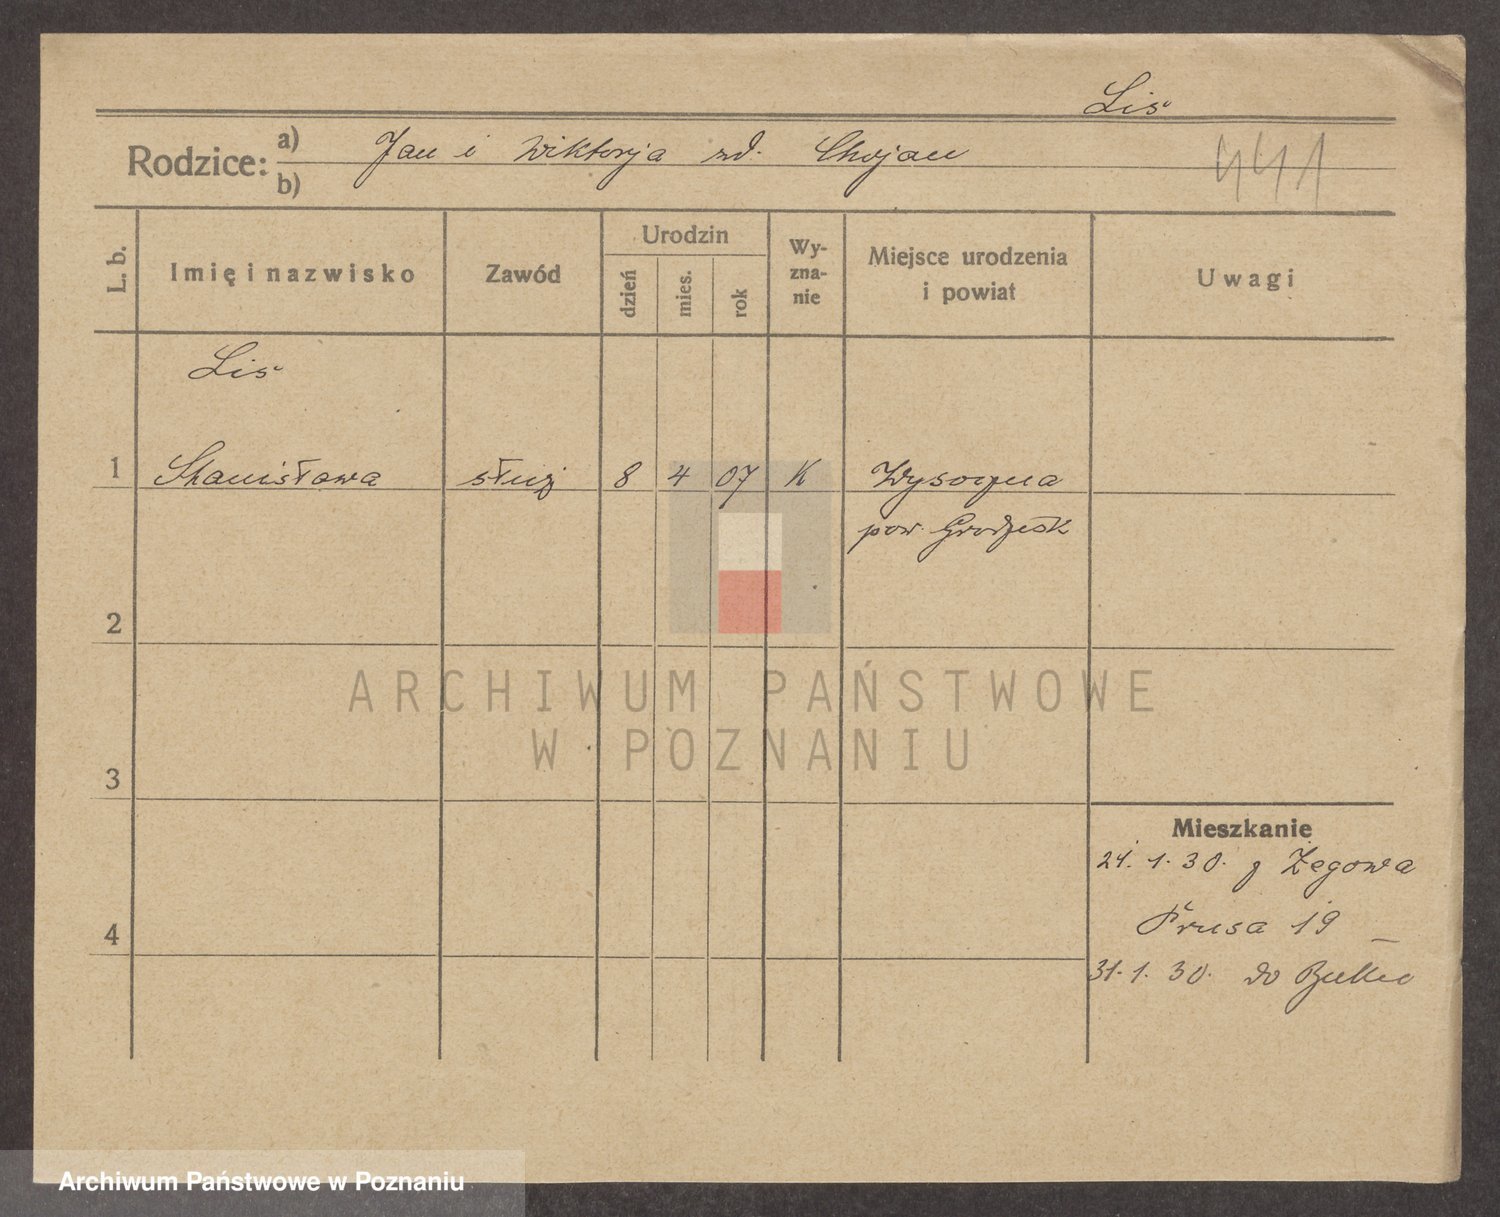 Lis
Rodzice: a) Jan i Wiktorja zd. Chojan
b)
441
L. b. Imię i nazwisko Zawód Urodzin dzień mies. rok Wy-zna-nie Miejsce urodzenia i powiat Uwagi
Lis
1 Stanisława służ 8 4 07 K Wysoczna
pow. Grodzisk
2
ARCHIWUM PAŃSTWOWE
W POZNANIU
3
Mieszkanie
24. 1. 30. z Żegowa
Prusa 19
4
31. 1. 30. do
Archiwum Państwowe w Poznaniu